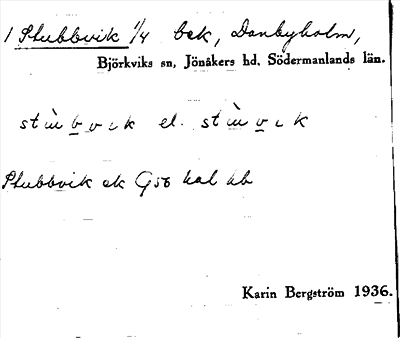 1 Stubbvik 1/4 bek, Danbyholm,
Björkviks sn, Jönåkers hd. Södermanlands län.
stu̇̀bvɩk el. stu̇̀vɩk
Stubbvik ek G56 kal bb
Karin Bergström 1936.